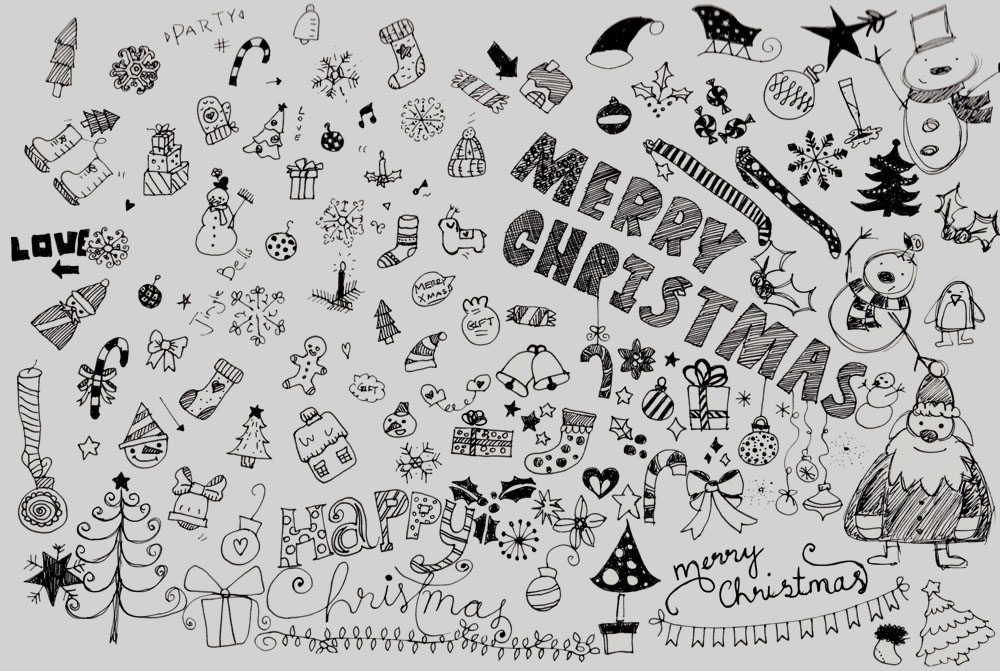 PARTY
#
LOVE
LOVE
Bells
Jingle
MERRY
XMAS
GIFT
GIFT
MERRY
CHRISTMAS
HaPPy
Christmas
merry
Christmas